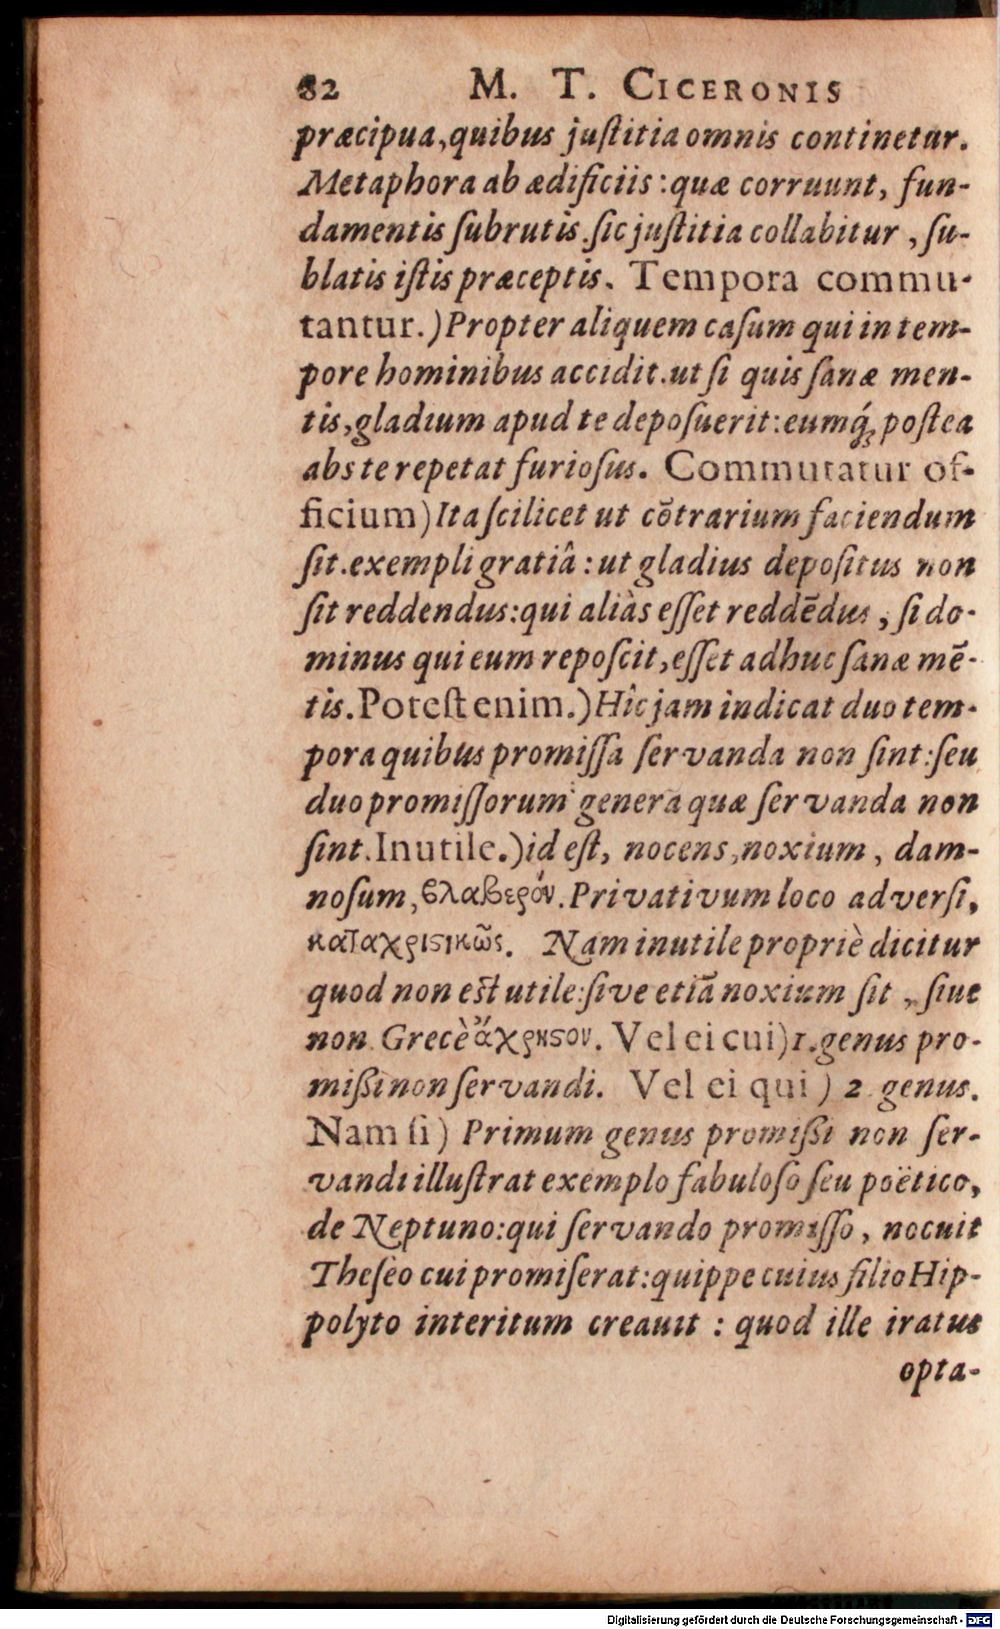 82 M. T. CICERONIS
præcipua,quibus juſtitia omnis continetur.
Metaphora ab ædificiis:quæ corruunt, fun-
damentis ſubrutis.ſic juſtitia collabitur, ſu-
blatis iſtis præceptis. Tempora commu-
tantur.)Propter aliquem caſum qui in tem-
pore hominibus accidit.ut ſi quis ſanæ men-
tis,gladium apud te depoſuerit:eumq́; poſtea
abs te repetat furioſus. Commutatur of-
ficium)Ita ſcilicet ut cōtrarium faciendum
ſit.exempli gratiâ:ut gladius depoſitus non
ſit reddendus:qui aliàs eſſet reddēdus, ſi do-
minus qui eum repoſcit,eſſet adhuc ſanæ mē-
tis.Poteſt enim.)Hîc jam indicat duo tem-
pora quibus promiſſa ſervanda non ſint:ſeu
duo promiſſorum genera quæ ſervanda non
ſint.Inutile.)id eſt, nocens,noxium, dam-
noſum,βλαβερόν.Privativum loco adverſi,
καταχρισικῶς. Nam inutile propriè dicitur
quod non eſt utile:ſive etiā noxium ſit, ſiue
non. Grecè ἄχρηστον. Vel ei cui)1.genus pro-
mißi non ſervandi. Vel ei qui) 2 genus.
Nam ſi) Primum genus promißi non ſer-
vandi illuſtrat exemplo fabuloſo ſeu poëtico,
de Neptuno:qui ſervando promiſſo, nocuit
Theſeo cui promiſerat:quippe cuius filio Hip-
polyto interitum creauit: quod ille iratus
opta-
Digitalisierung gefördert durch die Deutsche Forschungsgemeinschaft - DFG